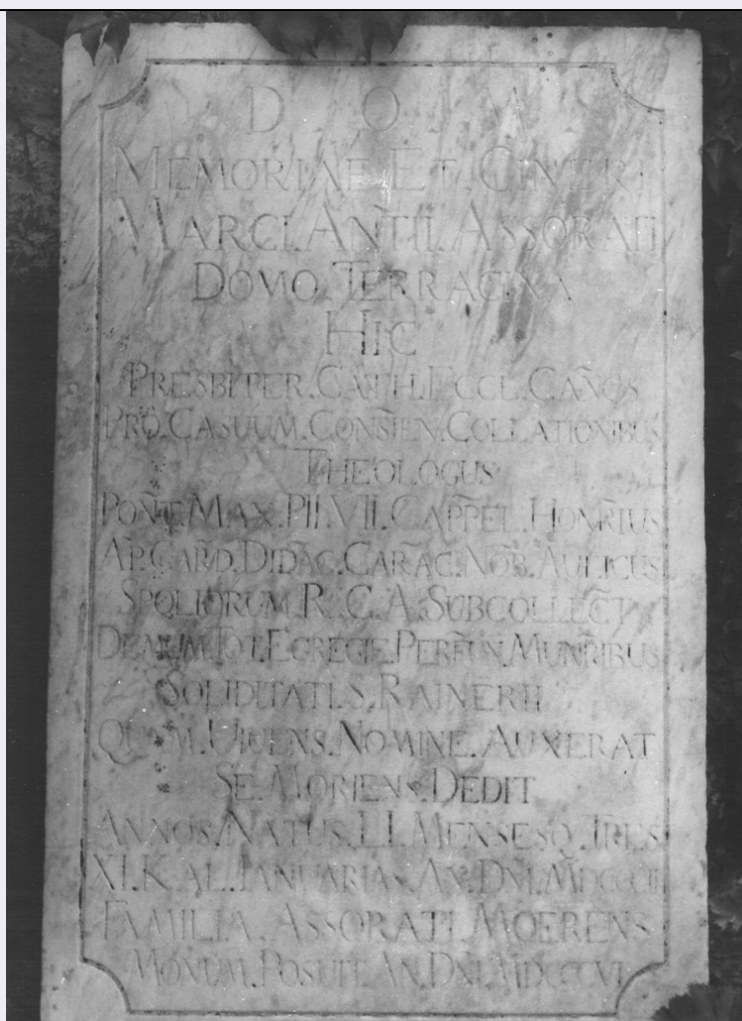 D. O. M.
MEMORIAE ET. CINERI
MARCI. ANTII. ASSORATI
DOMO. TERRACINA
HIC
PRESBITER. CATH. ECCL. CAÑCS
PRO. CASUUM. CONSIEN. COLLATIONIBUS
THEOLOGUS
PONT. MAX. PII. VII. CAPPEL. HONRIUS
AP. CARD. DIDAC. CARAC. NOB. AULICUS
SPOLIORUM. R. C. A. SUBCOLLECT
DEMUM. TOT. EGREGIE. PERFUN. MUNRIBUS
SOLIDITATI. S. RAINERII
QUAM. UIUENS. NOMINE. AUXERAT
SE. MORIENS. DEDIT
ANNOS. NATUS. LI. MENSESQ. TRES
XI. KAL. IANUARIAS. AN. DNI.
FAMILIA. ASSORATI. MOERENS
MONUM. POSUIT. AN. DNI. MDCCCVI